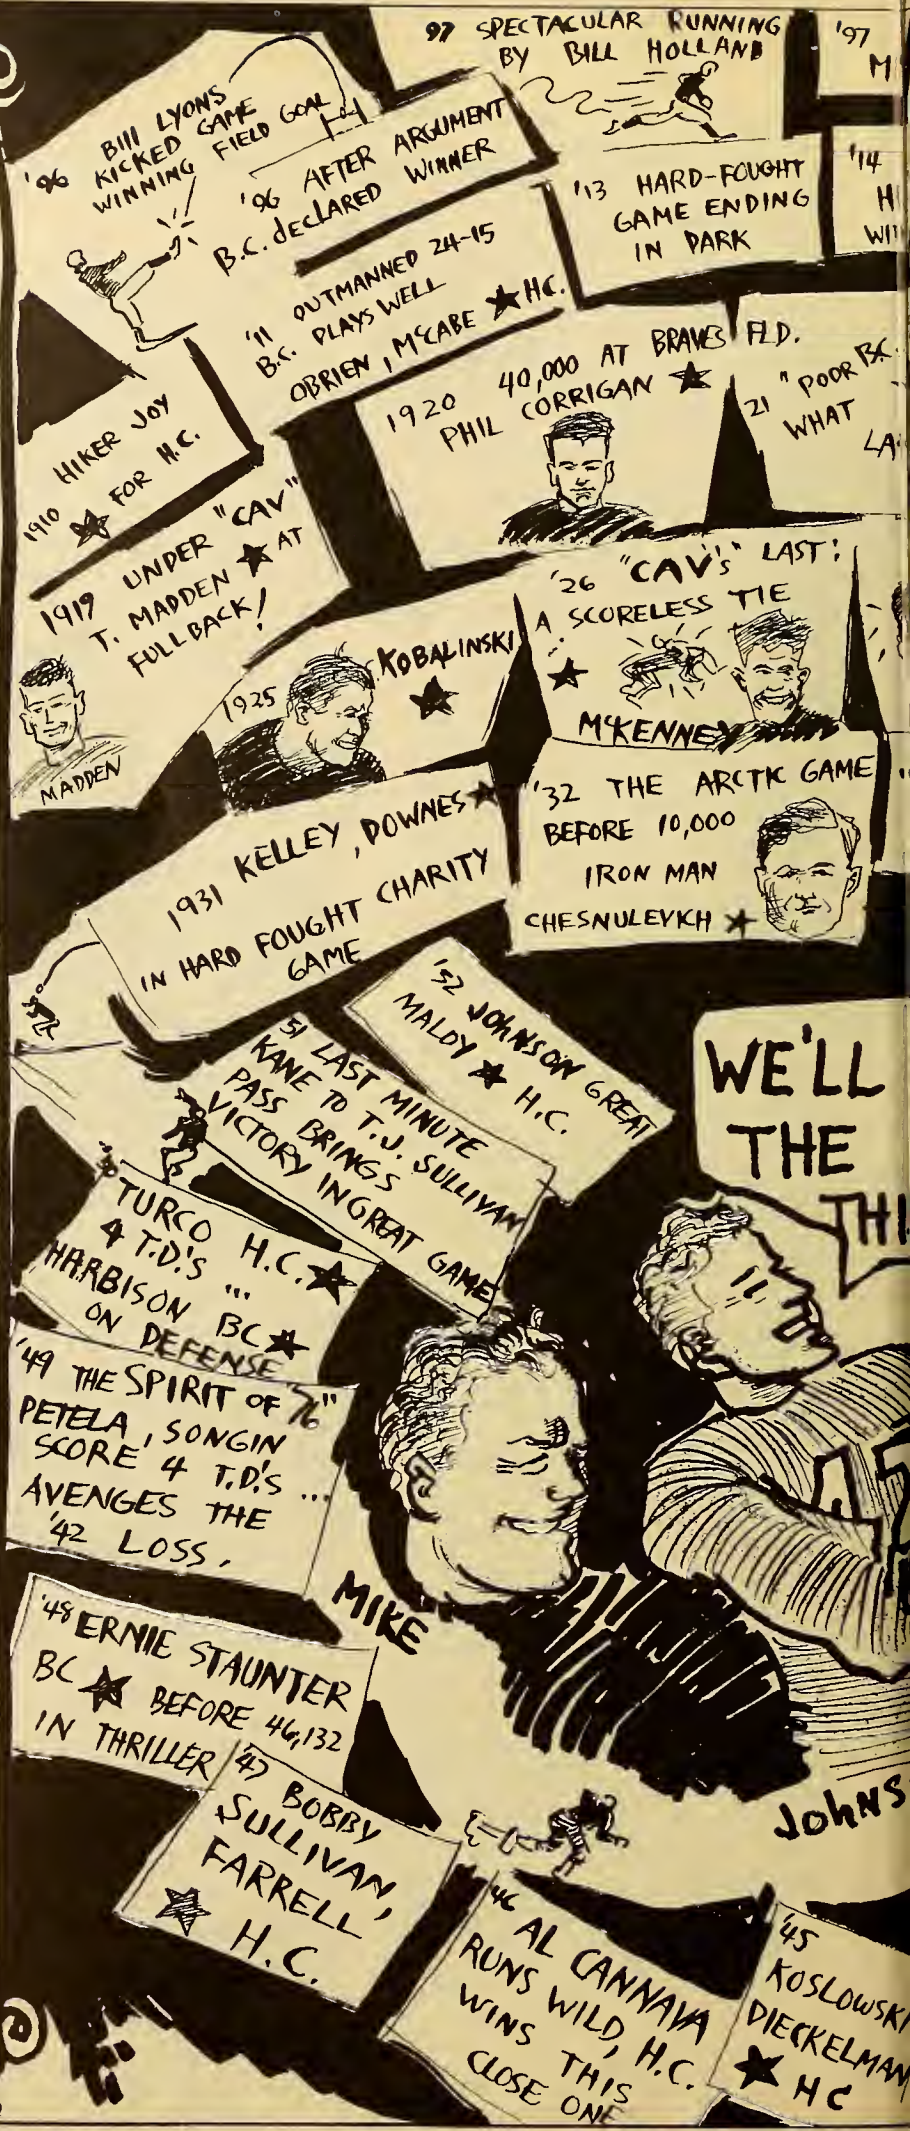 '96 BIll LYONS
KICKED GAME
WINNING FIELD GOAL
'96 AFTER ARGUMENT
B.C. declARED WINNER
97 SPECTACULAR RUNNING
BY BILL HOLLAND
'97
M
'11 OUTMANNED 24-15
B.C. PLAYS WELL
OBRIEN, McCABE ★ H.C.
'13 HARD-FOUGHT
GAME ENDING
IN DARK
'14
H
WI
HIKER JOY
1910 ★ FOR H.C.
1920 40,000 AT BRAVES FLD.
PHIL CORRIGAN ★
21 "POOR B.C.
WHAT
LA
1919 UNDER "CAV"
T. MADDEN ★ AT
FULLBACK!
MADDEN
1925 KOBALINSKI
★
'26 "CAV's" LAST!
A SCORELESS TIE
★
McKENNEY
1931 KELLEY, DOWNES ★
IN HARD FOUGHT CHARITY
GAME
'32 THE ARCTIC GAME
BEFORE 10,000
IRON MAN
CHESNULEVICH ★
'52 JOHNSON GREAT
MALOY ★ H.C.
51 LAST MINUTE
KANE TO T.J. SULLIVAN
PASS BRINGS
VICTORY IN GREAT GAME
WE'LL
THE
THI
TURCO H.C. ★
4 T.D.'S ...
HARBISON BC ★
ON DEFENSE
'49 THE SPIRIT OF 76"
PETELA, SONGIN
SCORE 4 T.D.'S ...
AVENGES THE
'42 LOSS.
MIKE
42
JohNS
'48 ERNIE STAUNTER
BC ★ BEFORE 46,132
IN THRILLER
'47 BOBBY
SULLIVAN,
FARRELL
★ H.C.
'46 AL CANNAVA
RUNS WILD, H.C.
WINS THIS
CLOSE ONE
'45
KOSLOWSKI
DIECKELMAN
★ H C